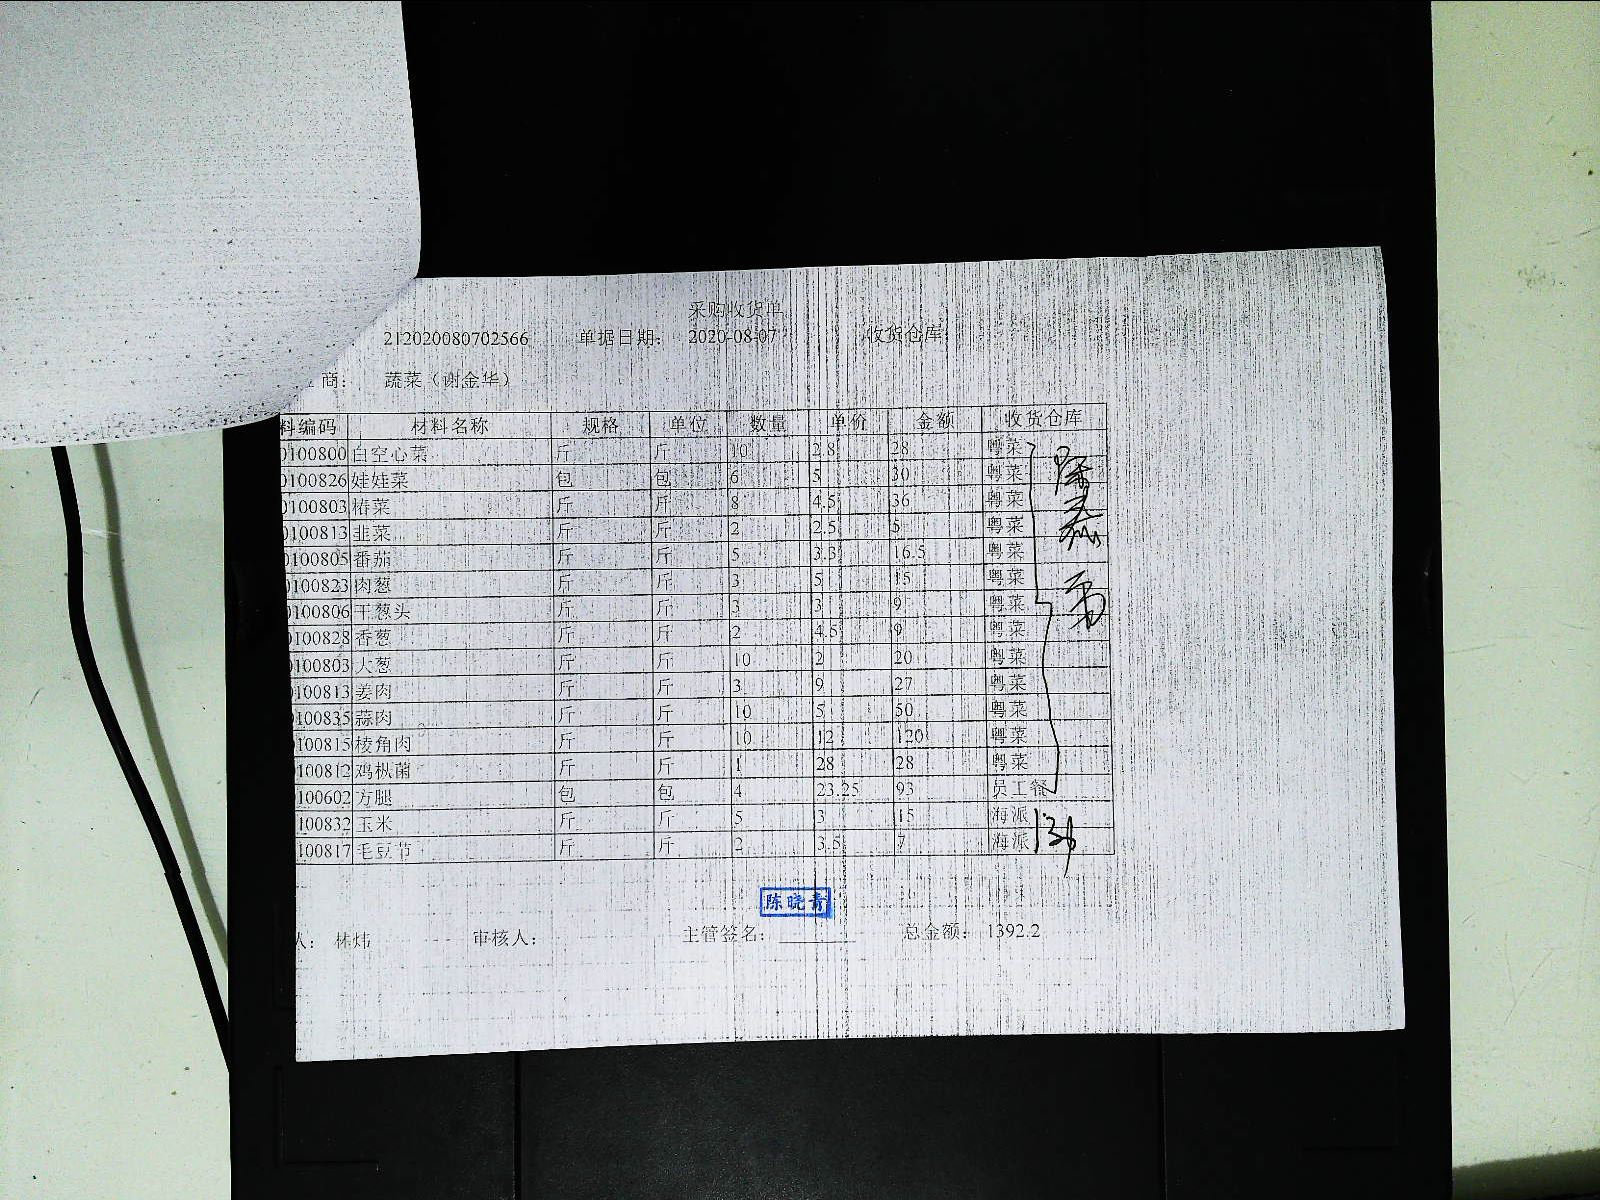 采购收货单
212020080702566 单据日期: 2020-08-07 收货仓库
商: 蔬菜（谢金华）
料编码 材料名称 规格 单位 数量 单价 金额 收货仓库
0100800 白空心菜 斤 斤 10 2.8 28 粤菜
0100826 娃娃菜 包 包 6 5 30 粤菜
0100803 椿菜 斤 斤 8 4.5 36 粤菜
0100813 韭菜 斤 斤 2 2.5 5 粤菜
0100805 番茄 斤 斤 5 3.3 16.5 粤菜
0100823 肉葱 斤 斤 3 5 15 粤菜
0100806 干葱头 斤 斤 3 3 9 粤菜
0100828 香葱 斤 斤 2 4.5 9 粤菜
0100803 大葱 斤 斤 10 2 20 粤菜
0100813 姜肉 斤 斤 3 9 27 粤菜
0100835 蒜肉 斤 斤 10 5 50 粤菜
100815 棱角肉 斤 斤 10 12 120 粤菜
100812 鸡枞菌 斤 斤 1 28 28 粤菜
100602 方腿 包 包 4 23.25 93 员工餐
100832 玉米 斤 斤 5 3 15 海派
100817 毛豆节 斤 斤 2 3.5 7 海派
陈晓青
人: 林炜 审核人: 主管签名: 总金额: 1392.2